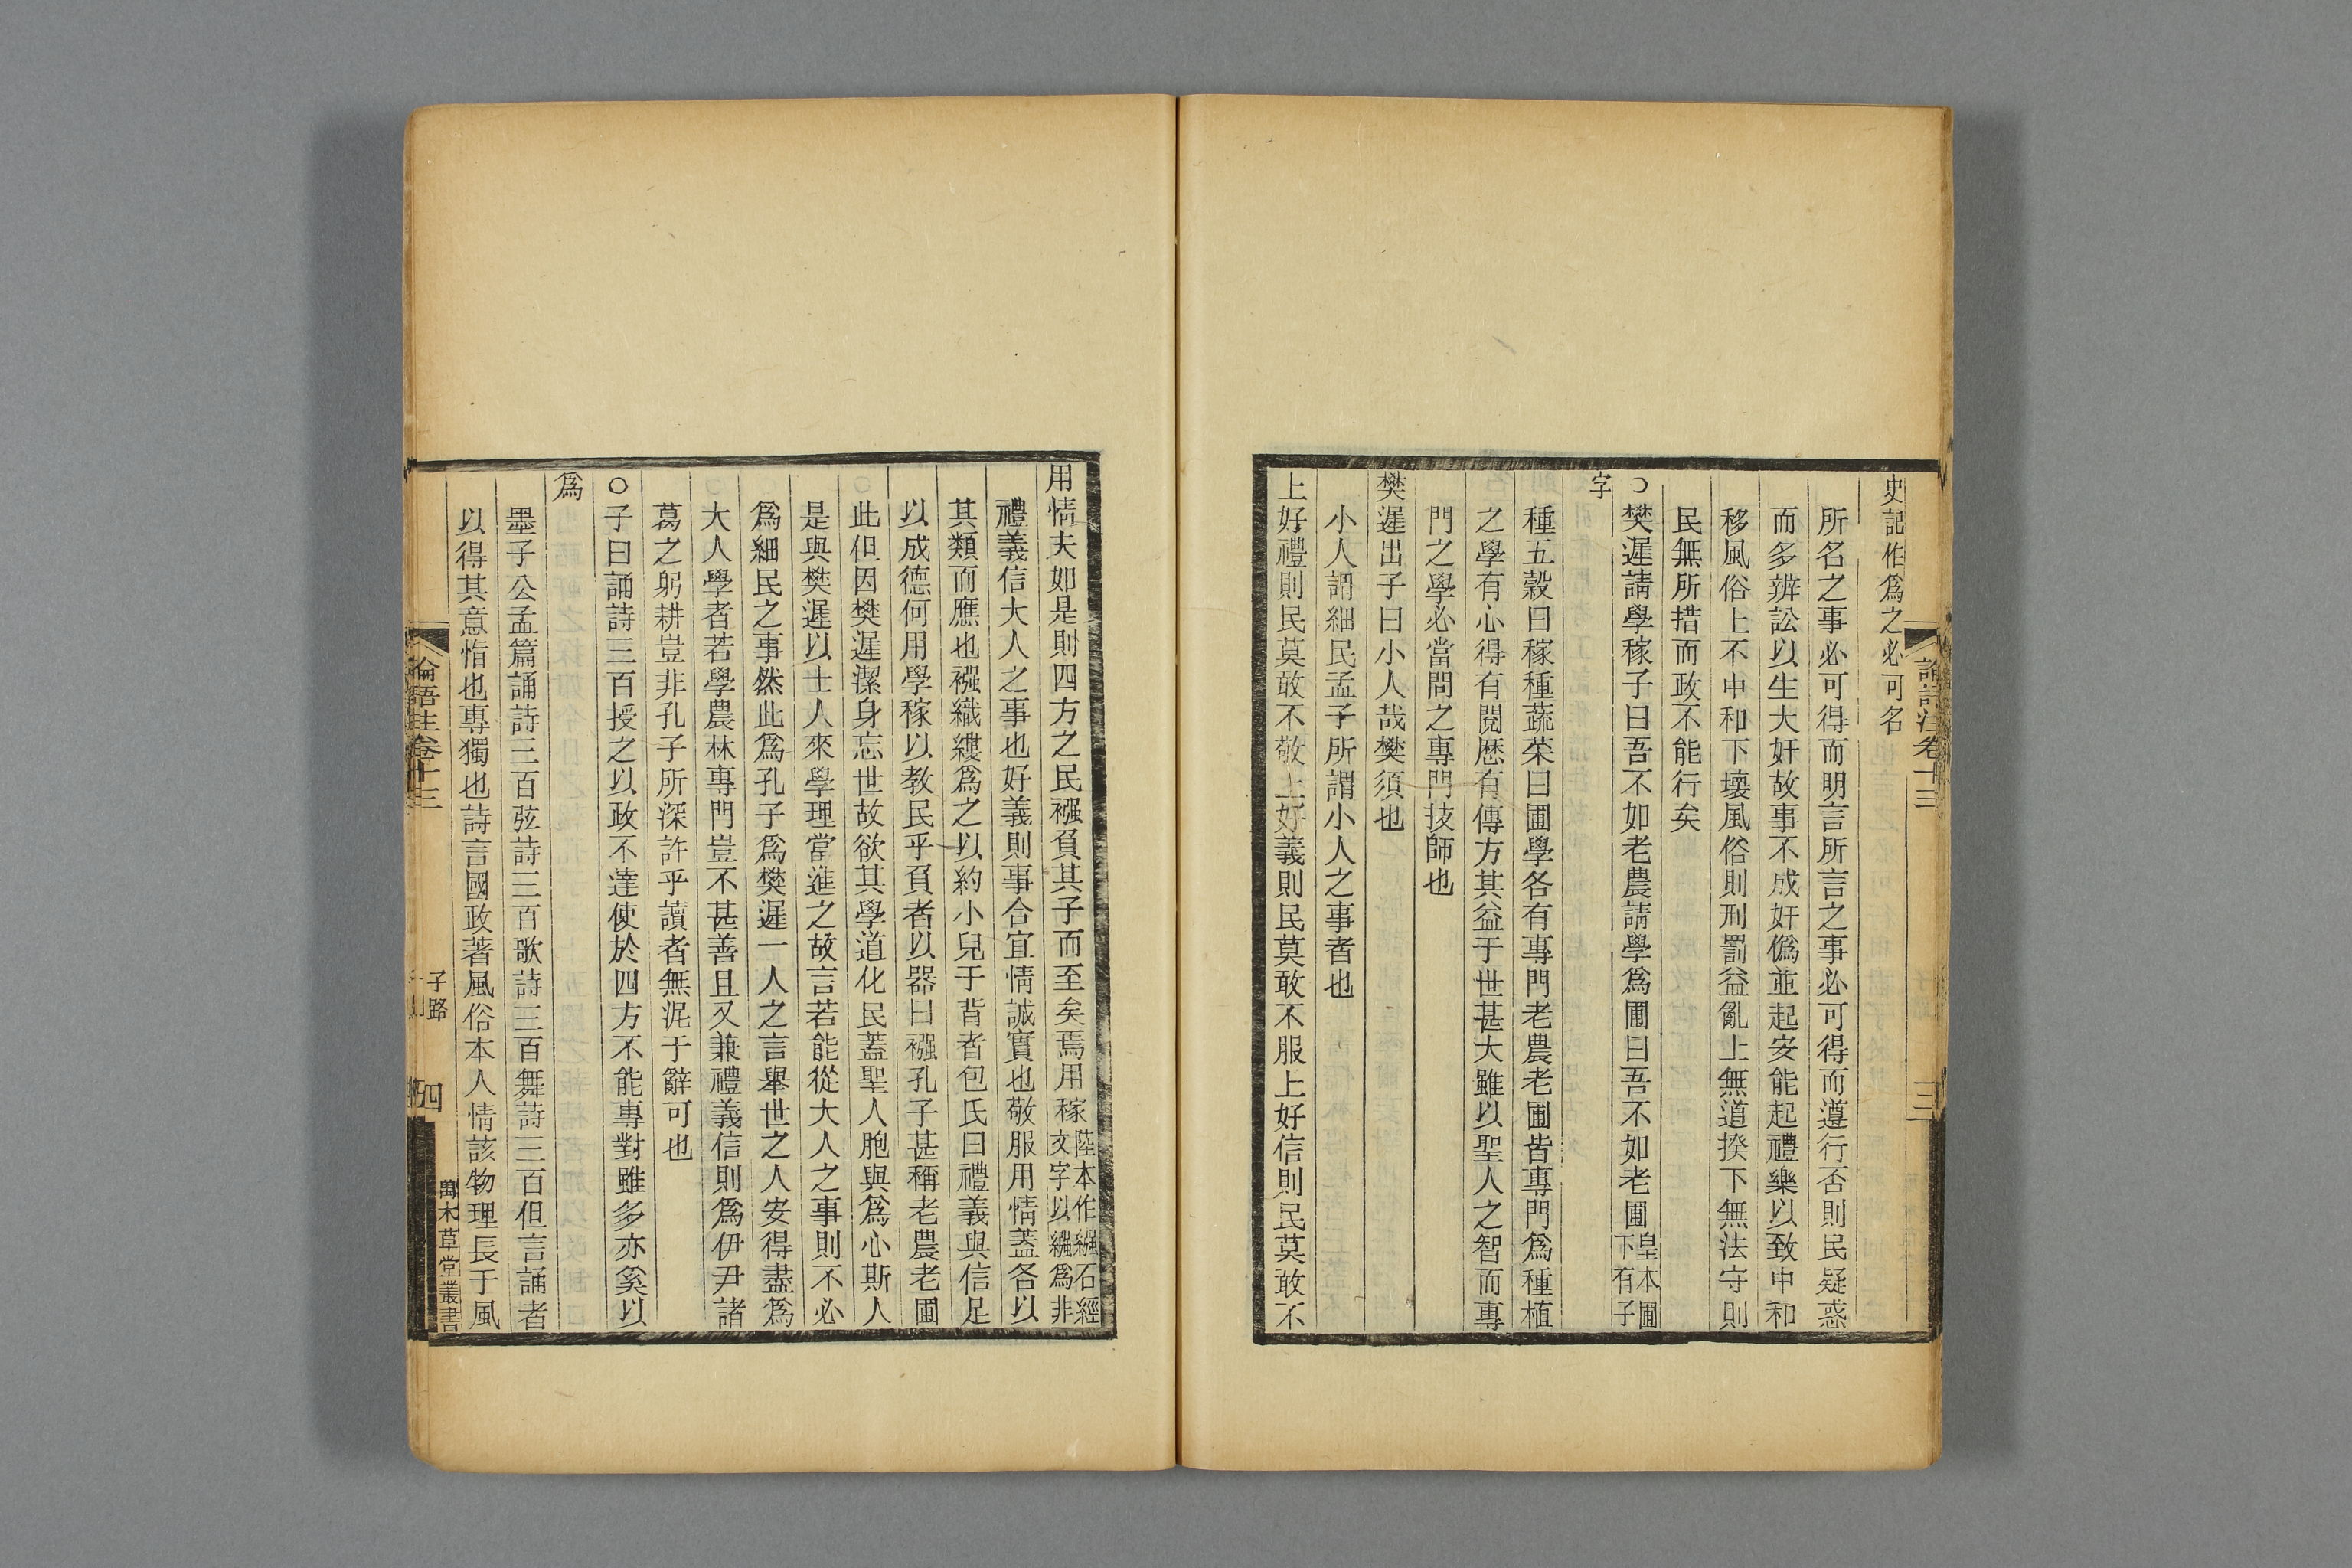 史記作爲之必可名
所名之事必可得而明言所言之事必可得而遵行否則民疑惑
而多辨訟以生大奸故事不成奸僞並起安能起禮樂以致中和
移風俗上不中和下壞風俗則刑罰益亂上無道揆下無法守則
民無所措而政不能行矣
○樊遲請學稼子曰吾不如老農請學爲圃曰吾不如老圃皇本圃下有子
字
種五穀曰稼種蔬菜曰圃學各有專門老農老圃皆專門爲種植
之學有心得有閱歷有傳方其益于世甚大雖以聖人之智而專
門之學必當問之專門技師也
樊遲出子曰小人哉樊須也
小人謂細民孟子所謂小人之事者也
上好禮則民莫敢不敬上好義則民莫敢不服上好信則民莫敢不
論語注卷十三
三
用情夫如是則四方之民襁負其子而至矣焉用稼陸本作繦石經文字以繦爲非
禮義信大人之事也好義則事合宜情誠實也敬服用情蓋各以
其類而應也襁織縷爲之以約小兒于背者包氏曰禮義與信足
以成德何用學稼以教民乎負者以器曰襁孔子甚稱老農老圃
此但因樊遲潔身忘世故欲其學道化民蓋聖人胞與爲心斯人
是與樊遲以士人來學理當進之故言若能從大人之事則不必
爲細民之事然此爲孔子爲樊遲一人之言舉世之人安得盡爲
大人學者若學農林專門豈不甚善且又兼禮義信則爲伊尹諸
葛之躬耕豈非孔子所深許乎讀者無泥于辭可也
○子曰誦詩三百授之以政不達使於四方不能專對雖多亦奚以
爲
墨子公孟篇誦詩三百弦詩三百歌詩三百舞詩三百但言誦者
以得其意恉也專獨也詩言國政著風俗本人情該物理長于風
論語注卷十三
子路
四
萬木草堂叢書